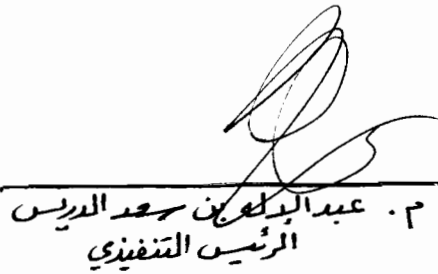 م. عبد الإله بن سعد الدريس
الرئيس التنفيذي